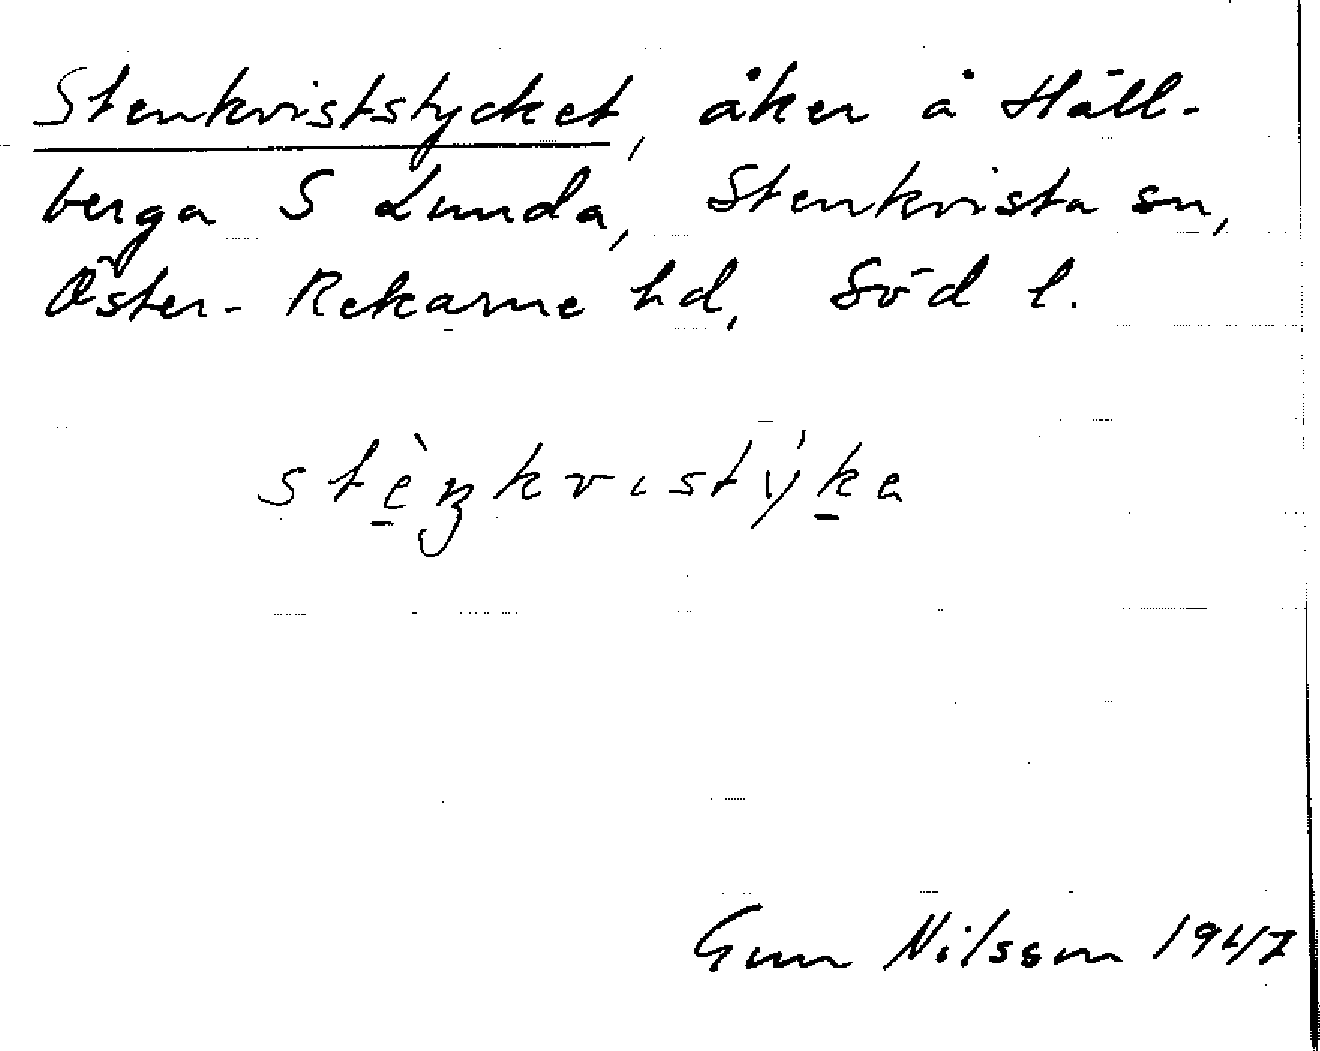 Stenkviststycket, åker å Häll-
berga S Lunda, Stenkvista sn,
Öster-Rekarne hd, Söd l.
stèŋkvistýka
Gun Nilsson 1947